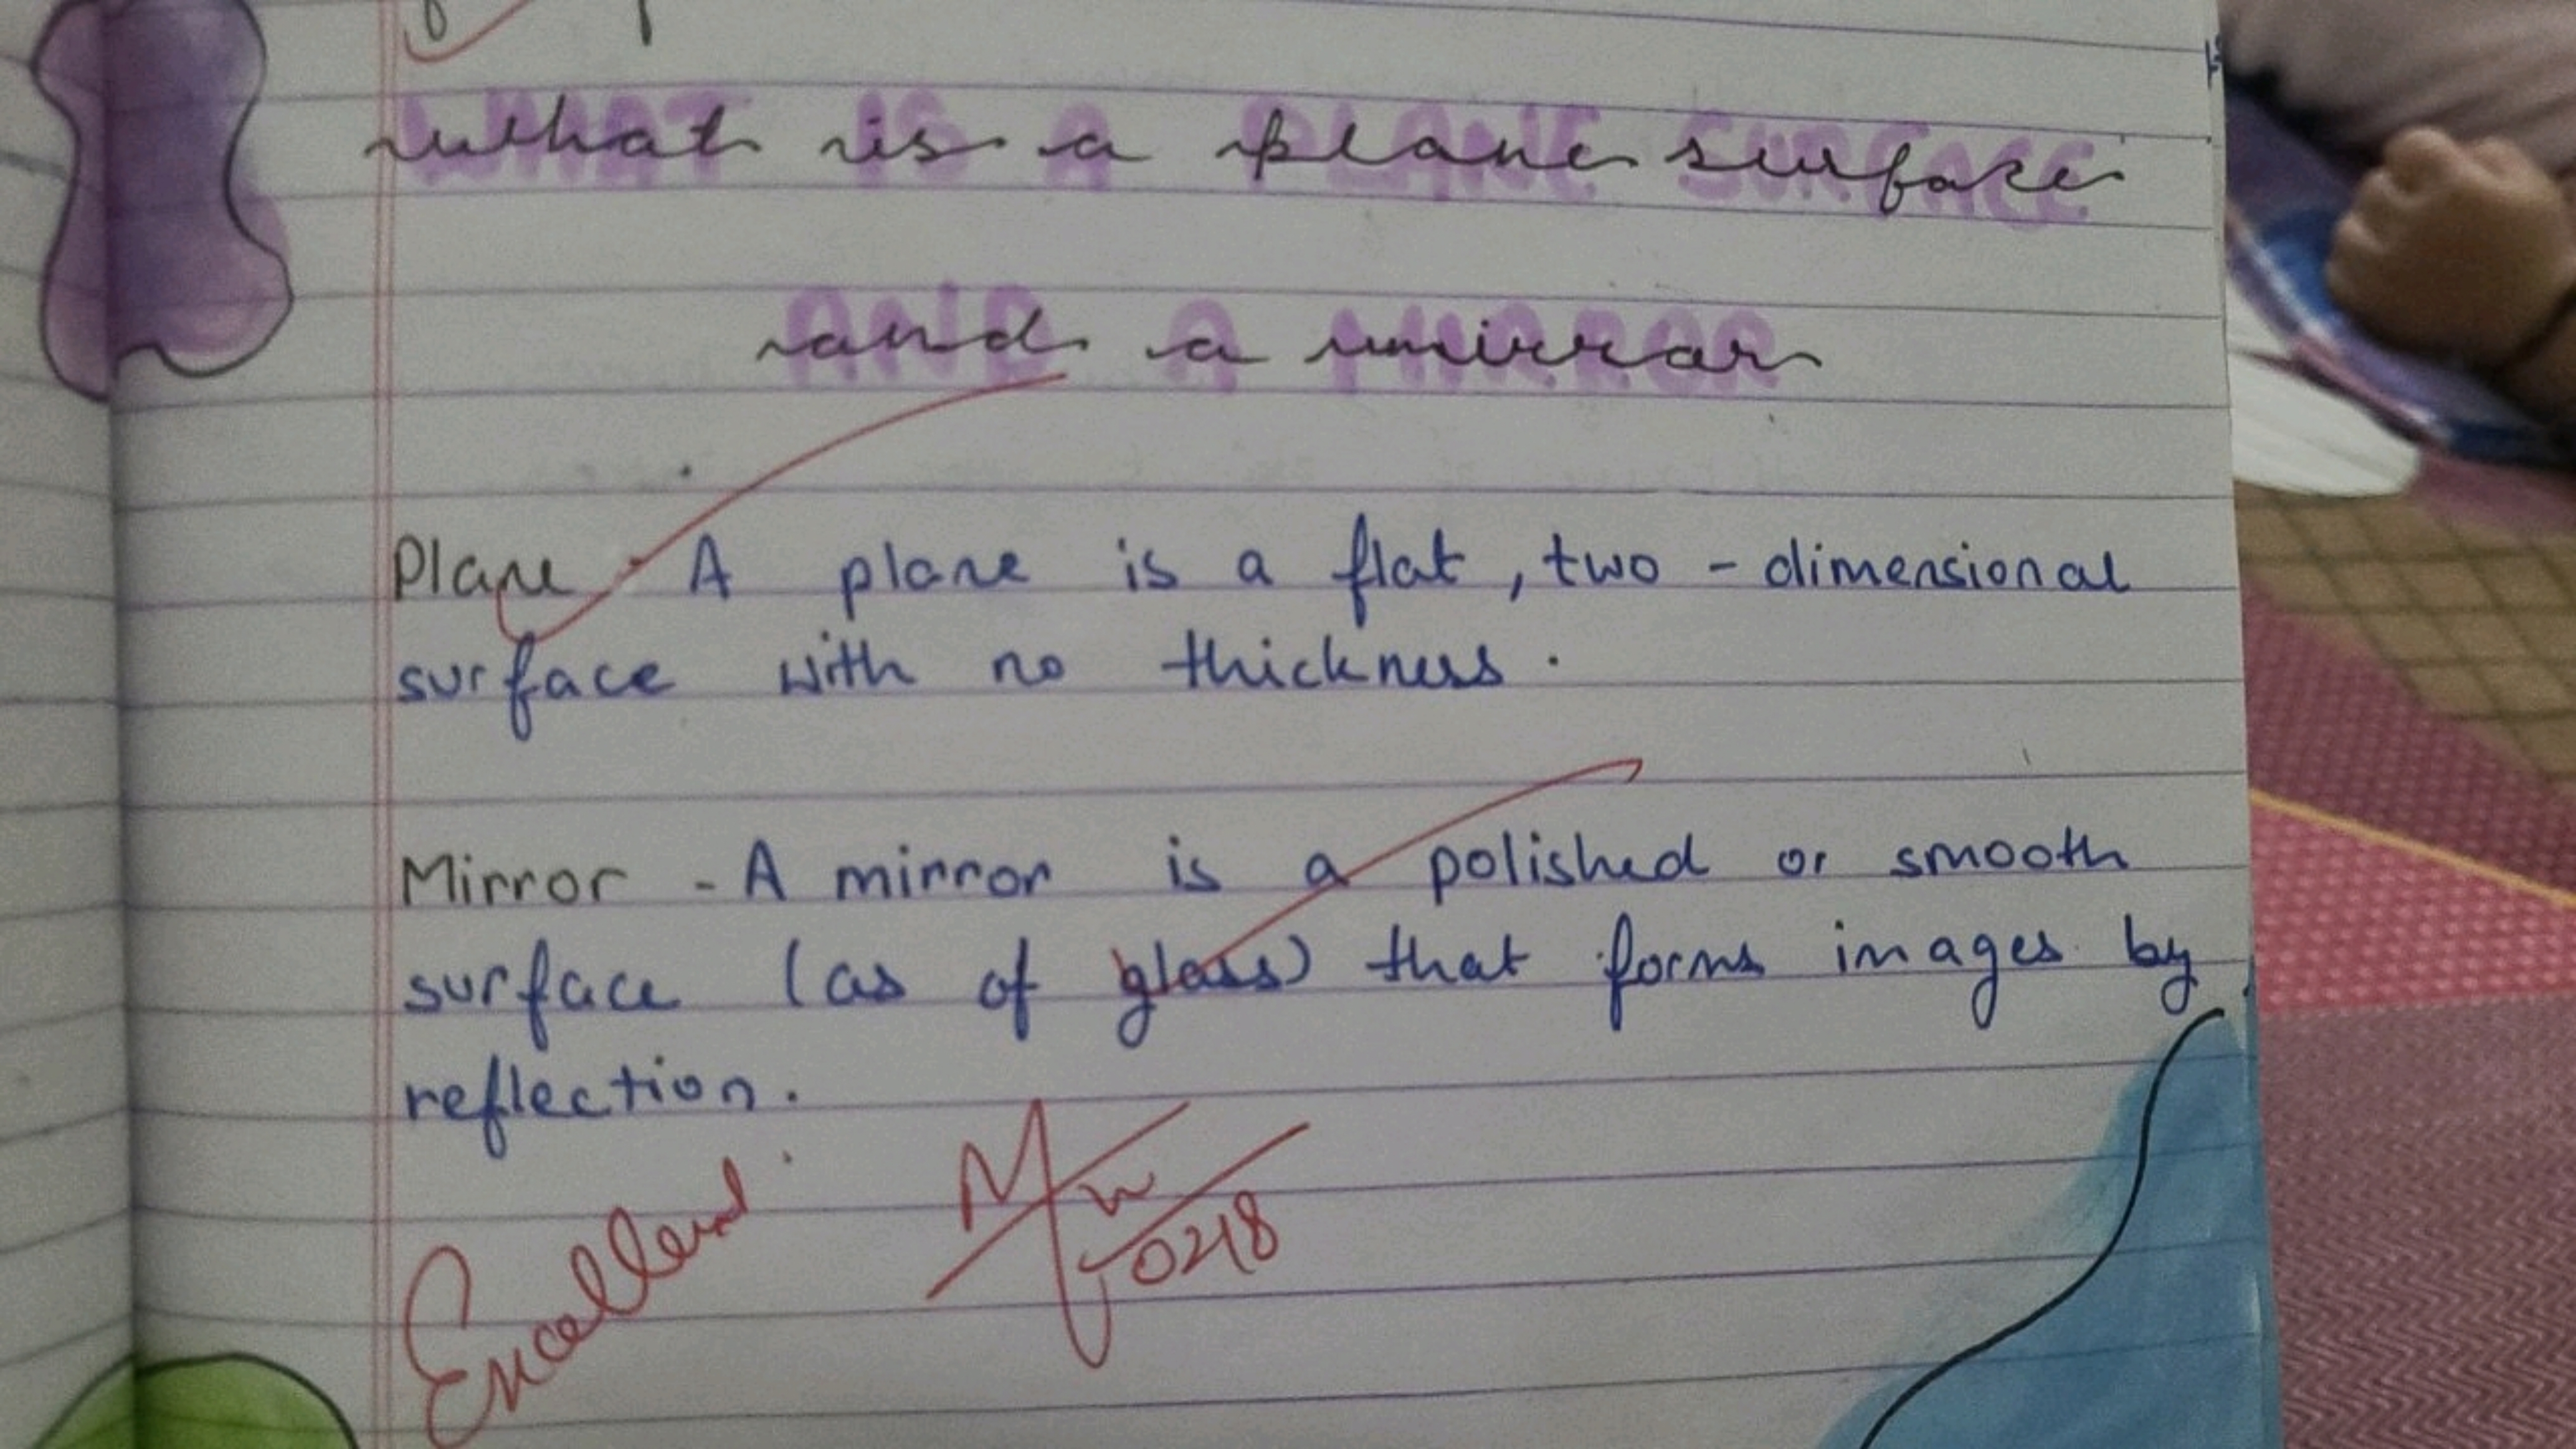 what is a plane surface
and a mirror
Plane - A plane is a flat, two - dimensional
surface with no thickness.
Mirror - A mirror is a polished or smooth
surface (as of glass) that forms images by
reflection.
Excellent